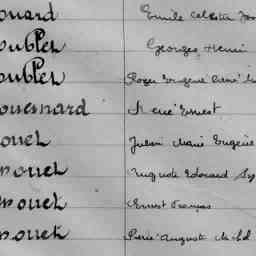 ouard Emile Celestin
oublet Georges Henri
oublet Roger Eugène René
ouesnard René Ernest
ouet Julien Marie Eugène
ouet Auguste Edouard
ouet Ernest François
ouet Pierre Auguste Michel